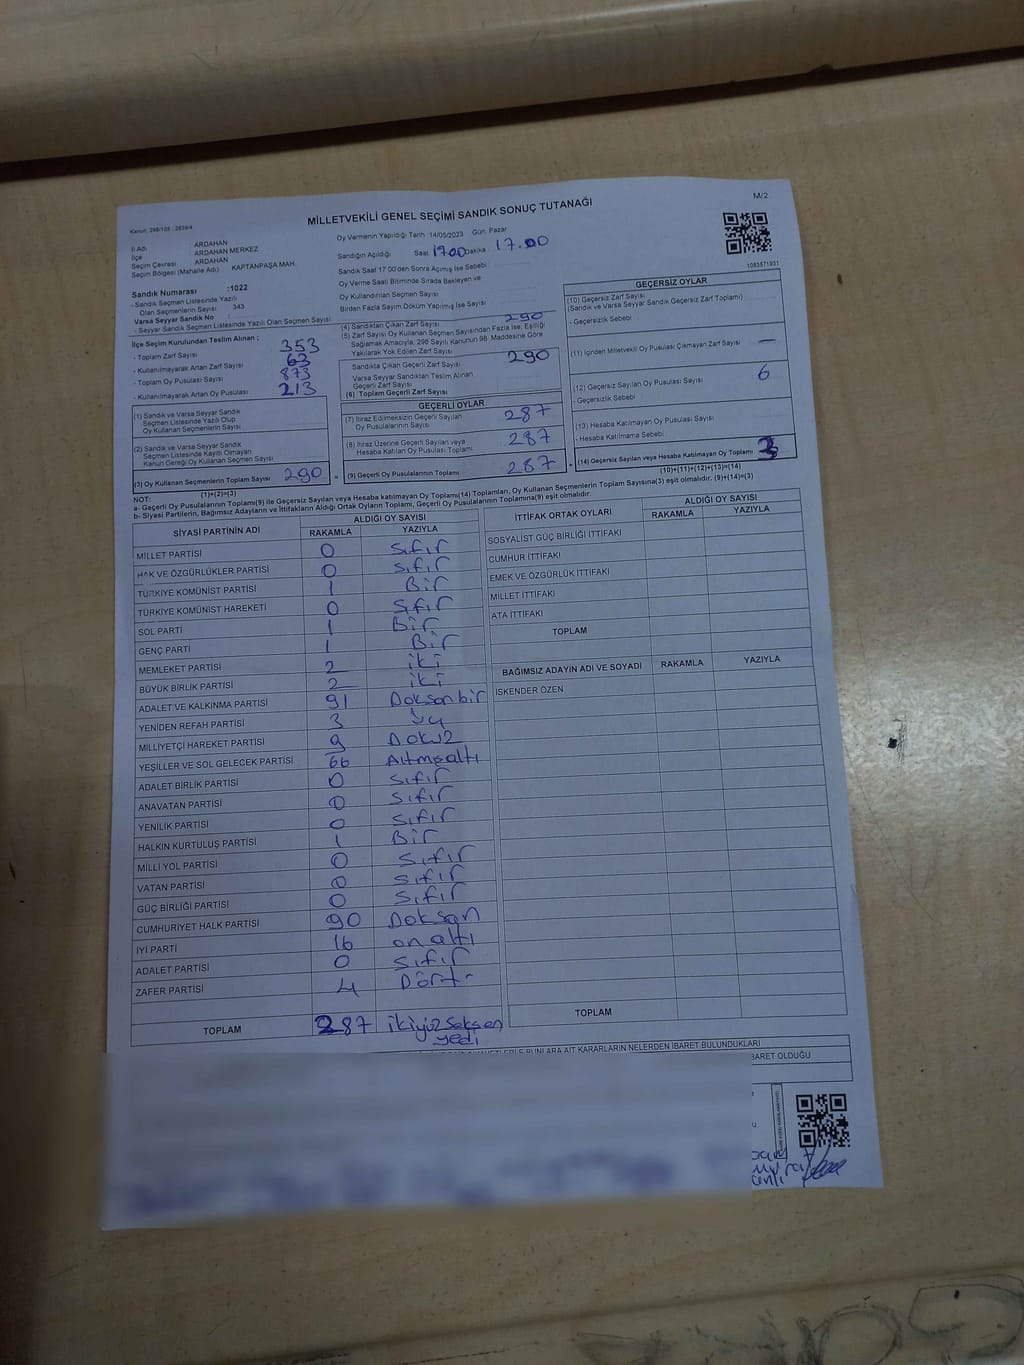 M/2
MİLLETVEKİLİ GENEL SEÇİMİ SANDIK SONUÇ TUTANAĞI
Kanun: 298/105 , 2839/4
Oy Vermenin Yapıldığı Tarih :14/05/2023 Gün: Pazar
İl Adı : ARDAHAN
İlçe : ARDAHAN MERKEZ
Seçim Çevresi : ARDAHAN
Seçim Bölgesi (Mahalle Adı) : KAPTANPAŞA MAH.
Sandık Numarası :1022
- Sandık Seçmen Listesinde Yazılı
Olan Seçmenlerin Sayısı : 343
Varsa Seyyar Sandık No :
- Seyyar Sandık Seçmen Listesinde Yazılı Olan Seçmen Sayısı:
Sandığın Açıldığı Saat 17.00 Dakika 17.00
Sandık Saat 17.00'den Sonra Açılmış İse Sebebi
Oy Verme Saati Bitiminde Sırada Bekleyen ve
Oy Kullandırılan Seçmen Sayısı
Birden Fazla Sayım Döküm Yapılmış İse Sayısı
1083571931
İlçe Seçim Kurulundan Teslim Alınan ;
- Toplam Zarf Sayısı 353
- Kullanılmayarak Artan Zarf Sayısı 63
- Toplam Oy Pusulası Sayısı 873
- Kullanılmayarak Artan Oy Pusulası 213
(1) Sandık ve Varsa Seyyar Sandık
Seçmen Listesinde Yazılı Olup
Oy Kullanan Seçmenlerin Sayısı
(2) Sandık ve Varsa Seyyar Sandık
Seçmen Listesinde Kayıtlı Olmayan
Kanun Gereği Oy Kullanan Seçmen Sayısı
(3) Oy Kullanan Seçmenlerin Toplam Sayısı 290
(1)+(2)=(3)
(4) Sandıktan Çıkan Zarf Sayısı 290
(5) Zarf Sayısı Oy Kullanan Seçmen Sayısından Fazla İse, Eşitliği
Sağlamak Amacıyla, 298 Sayılı Kanunun 98. Maddesine Göre
Yakılarak Yok Edilen Zarf Sayısı
Sandıkta Çıkan Geçerli Zarf Sayısı 290
Varsa Seyyar Sandıktan Teslim Alınan
Geçerli Zarf Sayısı
(6) Toplam Geçerli Zarf Sayısı
GEÇERLİ OYLAR
(7) İtiraz Edilmeksizin Geçerli Sayılan
Oy Pusulalarının Sayısı 287
(8) İtiraz Üzerine Geçerli Sayılan veya
Hesaba Katılan Oy Pusulası Toplamı 287
(9) Geçerli Oy Pusulalarının Toplamı 287
GEÇERSİZ OYLAR
(10) Geçersiz Zarf Sayısı
(Sandık ve Varsa Seyyar Sandık Geçersiz Zarf Toplamı)
- Geçersizlik Sebebi
(11) İçinden Milletvekili Oy Pusulası Çıkmayan Zarf Sayısı —
(12) Geçersiz Sayılan Oy Pusulası Sayısı 6
- Geçersizlik Sebebi
(13) Hesaba Katılmayan Oy Pusulası Sayısı
- Hesaba Katılmama Sebebi
(14) Geçersiz Sayılan veya Hesaba Katılmayan Oy Toplamı 3
(10)+(11)+(12)+(13)=(14)
NOT:
a- Geçerli Oy Pusulalarının Toplamı(9) ile Geçersiz Sayılan veya Hesaba katılmayan Oy Toplamı(14) Toplamları, Oy Kullanan Seçmenlerin Toplam Sayısına(3) eşit olmalıdır. (9)+(14)=(3)
b- Siyasi Partilerin, Bağımsız Adayların ve İttifakların Aldığı Ortak Oyların Toplamı, Geçerli Oy Pusulalarının Toplamına(9) eşit olmalıdır.
SİYASİ PARTİNİN ADI ALDIĞI OY SAYISI
RAKAMLA YAZIYLA
MİLLET PARTİSİ 0 Sıfır
HAK VE ÖZGÜRLÜKLER PARTİSİ 0 Sıfır
TÜRKİYE KOMÜNİST PARTİSİ 1 Bir
TÜRKİYE KOMÜNİST HAREKETİ 0 Sıfır
SOL PARTİ 1 Bir
GENÇ PARTİ 1 Bir
MEMLEKET PARTİSİ 2 iki
BÜYÜK BİRLİK PARTİSİ 2 iki
ADALET VE KALKINMA PARTİSİ 91 Doksan bir
YENİDEN REFAH PARTİSİ 3 Üç
MİLLİYETÇİ HAREKET PARTİSİ 9 Dokuz
YEŞİLLER VE SOL GELECEK PARTİSİ 66 Altmışaltı
ADALET BİRLİK PARTİSİ 0 Sıfır
ANAVATAN PARTİSİ 0 Sıfır
YENİLİK PARTİSİ 0 Sıfır
HALKIN KURTULUŞ PARTİSİ 1 Bir
MİLLİ YOL PARTİSİ 0 Sıfır
VATAN PARTİSİ 0 Sıfır
GÜÇ BİRLİĞİ PARTİSİ 0 Sıfır
CUMHURİYET HALK PARTİSİ 90 Doksan
İYİ PARTİ 16 on altı
ADALET PARTİSİ 0 Sıfır
ZAFER PARTİSİ 4 Dört
TOPLAM 287 ikiyüz Seksen
yedi
İTTİFAK ORTAK OYLARI ALDIĞI OY SAYISI
RAKAMLA YAZIYLA
SOSYALİST GÜÇ BİRLİĞİ İTTİFAKI
CUMHUR İTTİFAKI
EMEK VE ÖZGÜRLÜK İTTİFAKI
MİLLET İTTİFAKI
ATA İTTİFAKI
TOPLAM
BAĞIMSIZ ADAYIN ADI VE SOYADI RAKAMLA YAZIYLA
İSKENDER ÖZEN
TOPLAM
BUNLARA AİT KARARLARIN NELERDEN İBARET BULUNDUKLARI
BARET OLDUĞU